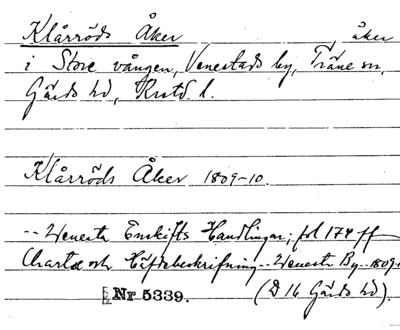 Klårröds Åker, åker
i Store vången, Venestads by, Träne sn,
Gärds hd, Kristd. l.
Klårröds Åker 1809-10.
-- Wenesta Enskifts Handlingar; fol 174 ff
Charta och Häfdebeskrifning -- Wenesta By -- 1809-1
Nr 5339. (D 16 Gärds hd).